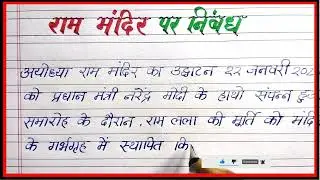 राम मंदिर पर निबंध
अयोध्या राम मंदिर का उद्घाटन २२ जनवरी
को प्रधान मंत्री नरेंद्र मोदी के हाथो संपन्न
समारोह के दौरान, राम लला की मूर्ति को
के गर्भगृह में स्थापित